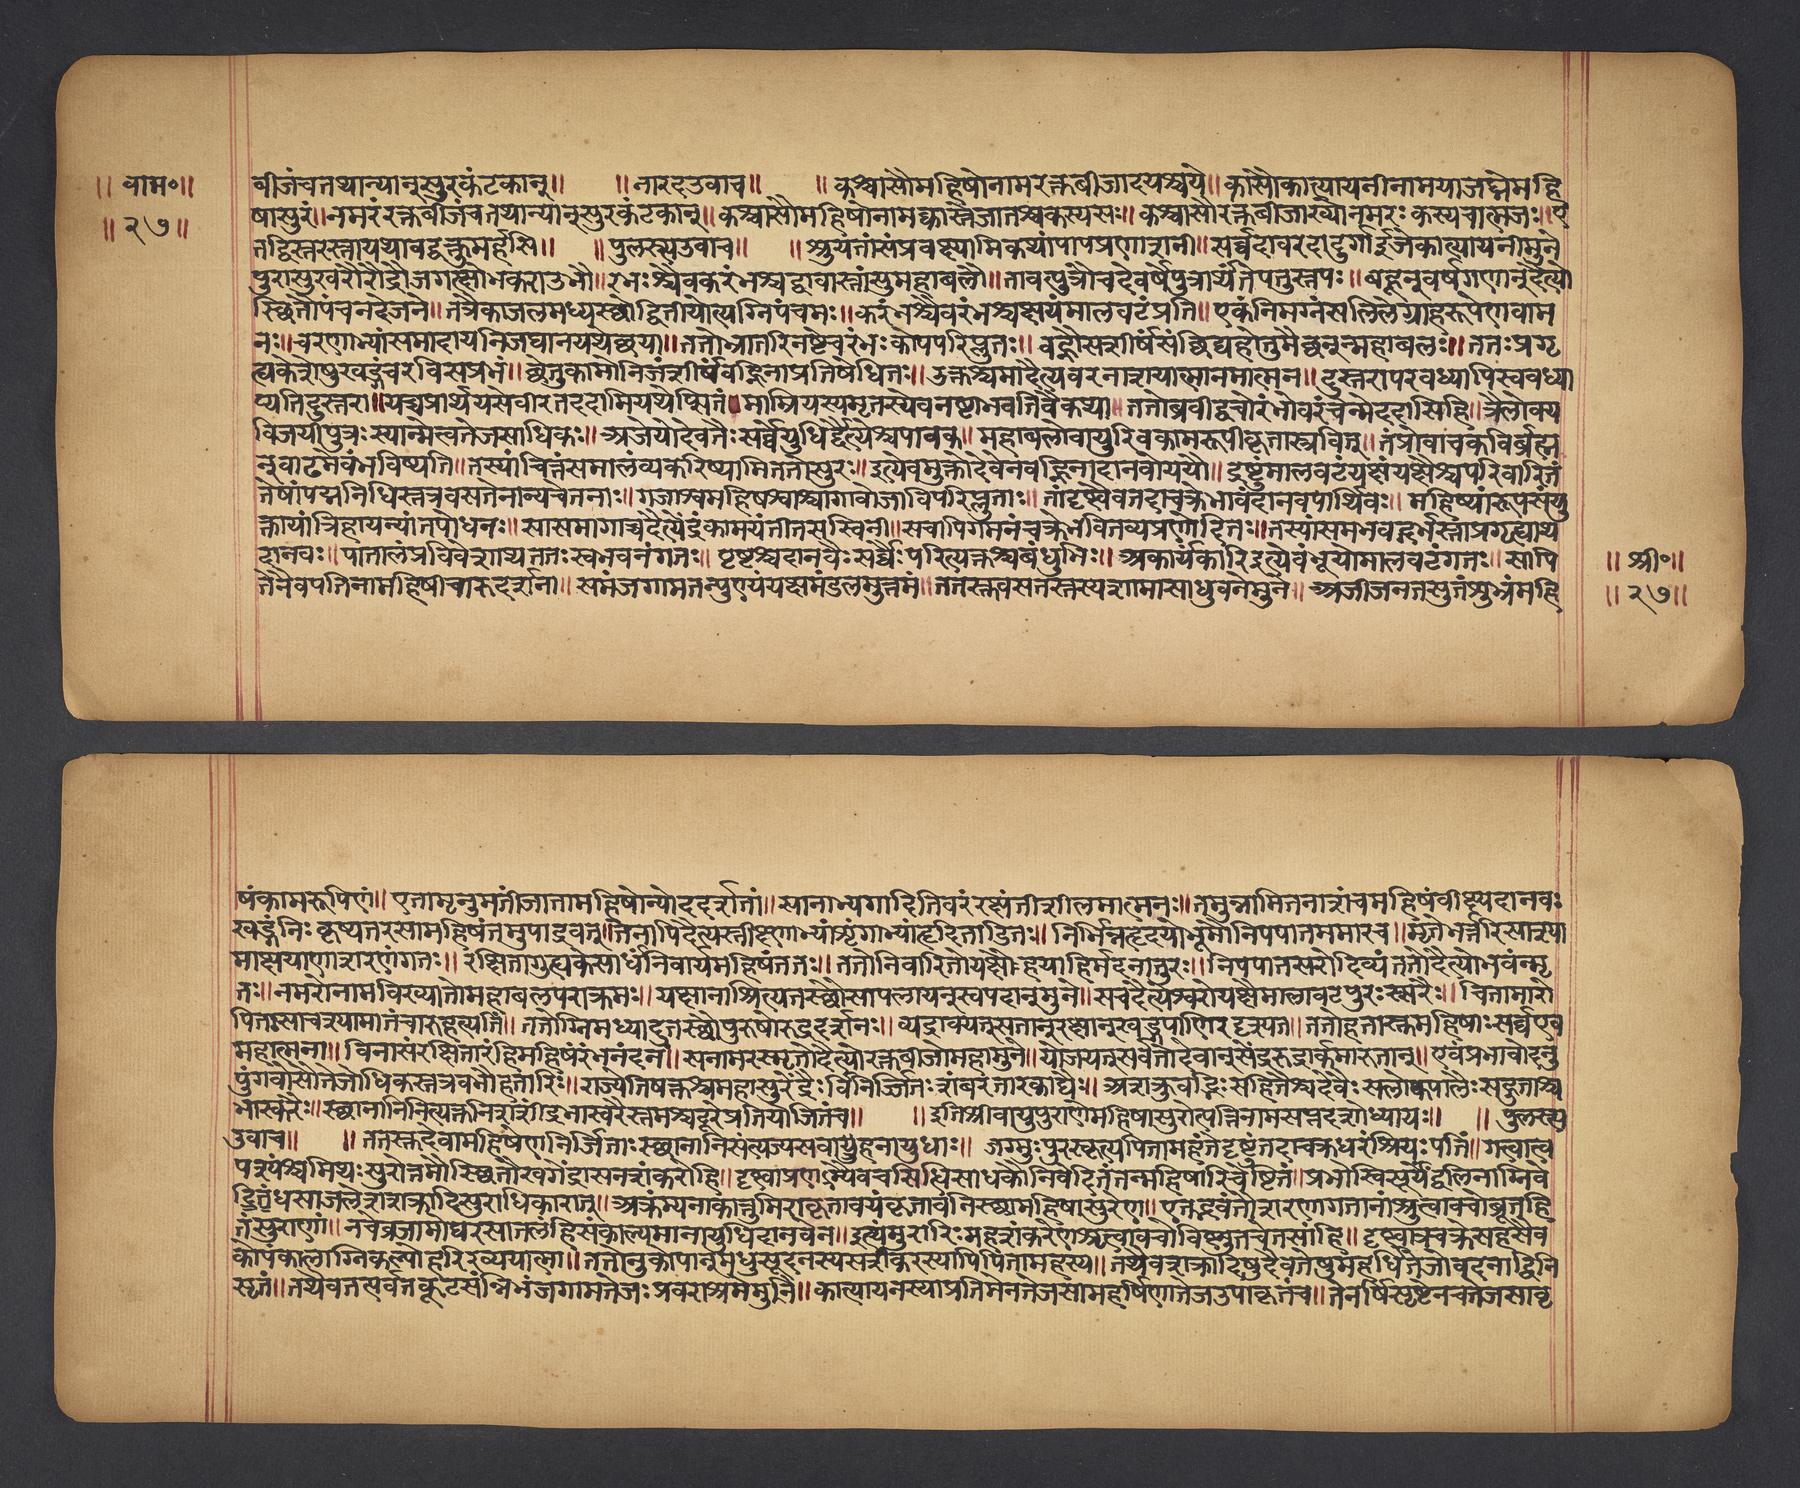 ॥ वाम॰॥
॥ २७॥
बीजंचतथान्यान्सुरकंटकान्॥ ॥नारदउवाच॥ ॥कश्चासौमहिषोनामरक्तबीजादयश्चये॥कासौकात्यायनीनामयाजघ्नेमहि
षासुरं॥नमरंरक्तबीजंचतथान्यान्सुरकंटकान्॥कश्चासौमहिषोनामकास्मैजातश्चकस्यसः॥कश्चासौरक्तबीजाख्योनमरः कस्यचात्मजः॥ए
तद्विस्तरस्तायथावद्वक्तुमर्हसि॥ ॥पुलस्त्यउवाच॥ ॥श्रुयतांसंप्रवक्ष्यामिकथांपापप्रणाशनी॥सर्वदावरदादुर्गार्इजेकात्यायनीमुने
पुरासुरवरौरौद्रौजगत्क्षोभकराउभौ॥रंभःश्चैवकरंभश्चद्वावास्तांसुमहाबलौ॥तावत्पुत्रौचदेवर्षेपुत्रार्थंतेपतुस्तपः॥बहून्वर्षगणान्दैत्यौ
स्छितौपंचनदेजने॥तत्रैकोजलमध्यस्छोद्वितीयोत्पग्निपंचमः॥करंभश्चैवरंभश्चयक्षंमालवटंप्रति॥एकंनिमग्नंसलिलेग्राहरूपेणवाम
नः॥चरणाभ्यांसमादायनिजघानयथेछया॥ततोभ्रातरिनष्टेचरंभः कोपपरिप्लुतः॥वह्नौसशीर्षंसंछिद्यहोतुमैछन्महाबलः॥ततःप्रगृ
ह्यकेशेषुखङ्गंचरविसप्रभं॥छेतुकामोनिजंशीर्षंवह्निनाप्रतिषेधितः॥उक्तश्चमादैत्यवरनाशयात्मानमात्मन॥दुस्तरापरवध्यापिस्ववध्या
प्यतिदुस्तरा॥यच्चप्रार्थयसेवीरतद्ददामियथेप्सितं॥माम्रियस्यमृतस्येवनष्टाभवतिवैकथा॥ततोब्रवीद्वचोरंभोवरंचेन्मेददासिहि॥त्रैलोक्य
विजयीपुत्रःस्यान्मेत्वत्तेजसाधिकः॥अजेयोदेवतैःसर्वैर्युधिर्द्दैत्यैश्चपावक॥महाबलोवायुरिवकामरूपीकृतास्त्रवित्॥तंप्रोवाचकविर्ब्रह्म
न्वाटमेवंभविष्यति॥तस्यांचित्तंसमालंव्यकरिष्यामिततोसुरः॥इत्येवमुक्तोदेवेनवह्निनादानवोययौ॥द्रष्टुंमालवटंयक्षंयक्षैश्चपरिवारितं
तेषांपद्मनिधिस्तत्रवसतेनान्यचेतनाः॥गजाश्वमहिषश्चाश्चागावोजाविपरिप्लुताः॥तांदृष्ट्वैवतदाचक्रेभावंदानवपार्थिवः॥महिष्यांरूपसंयु
क्तायांत्रिहायण्यांतपोधनः॥सासमागाच्चदैत्येंद्रंकामयंतीतसस्विनी॥सचापिगमनंचक्रेभवितव्यप्रणोदितः॥तस्यांसमभवद्गर्भस्तांप्रगृह्याथ
दानवः॥पातालंप्रविवेशाथततःस्वभवनंगतः॥पृष्टश्चदानवैःसर्वैःपरित्यक्तश्चबंधुभिः॥अकार्यकारिइत्येवंभूयोमालवटंगतः॥सापि
तेनैवपतिनामहिषीचारुदर्शना॥समंजगामतत्पुण्यंयक्षमंडलमुत्तमं॥ततस्क्तवसतस्तस्यश्यामासाधुवनेमुने॥अजीजनत्सुतंशुभ्रंमहि
॥ श्री॰॥
॥ २७॥
षंकामरूपिणं॥एतामृतुमतींजातामहिषोन्योददर्शतां॥साताभ्यगादितिवरंरक्षंतीशीलमात्मनः॥तमुन्नामितनाशंचमहिषंवीक्ष्यदानवः
खङ्गंनिःकृष्यतरसामहिषंतमुपाद्रवत्॥तेनापिदैत्यस्तीक्ष्णाभ्यांशृंगाभ्यांहृदिताडितः॥निर्भिन्नहृदयोभूमौनिपपातममारच॥मृतेभर्त्तरिसाश्या
मायक्षाणांशरणंगतः॥रक्षितागुह्यकैःसार्धंनिवार्यमहिषंततः॥ततोनिवारितोयक्षैःहयाहिर्मदनातुरः॥निपपातसरोदिव्यंततोदैत्योभवन्मृ
तः॥नमरोनामविख्यातोमहाबलपराक्रमः॥यक्षानाश्रित्यतस्छौसापलायन्स्वपदान्मुने॥सचदैत्येश्वरोयक्षैमालावटपुरःस्सरैः॥चितामारो
पितःसाचश्यामातंचारुहत्पतिं॥ततोग्निमध्यादुत्तस्छौपुरुषोरुद्रदर्शनः॥व्यद्रावयत्सतान्यक्षान्खङ्गपाणिरदृश्यत॥ततोहतास्क्तमहिषाःसर्वएव
महात्मना॥विनासंरक्षितारंहिमहिषंरंभनंदनं॥सनामरस्मृतोदैत्योरक्तबीजोमहामुने॥योजयत्सर्वतोदेवान्सेंद्ररुद्रार्कमारुतान्॥एवंप्रभावोदनु
पुंगवोसौतेजोधिकस्तत्रबभौहतारिः॥राज्येभिषक्तश्चमहासुरेंद्रैःविनिर्ज्जितःशंबरतारकाद्यैः॥अशक्नुवद्भिःसहितैश्चदेवैःसलोकपालैःसहुताश
भास्करैः॥स्छानानिनित्यक्तनिशशींद्रभास्करैस्तमश्चदूरेप्रतियोजितंच॥ ॥इतिश्रीवायुपुराणेमहिषासुरोत्पत्तिनामसप्तदशोध्यायः॥ ॥पुलस्त्य
उवाच॥ ॥ततस्क्तदेवामहिषेणनिर्जिताःस्छानानिसंत्यज्यसवायुहनायुधाः॥जग्मुःपुरस्कृत्यपितामहंतेदृष्टुंतदाचक्रधरंश्रियःपतिं॥गत्वात्व
पश्यंश्चमिथःसुरोत्तमौस्छितौखगेंद्रासनशंकरौहि॥दृष्ट्वाप्रणम्यैवचसिधिसाधकौनिवेदितंतन्महिषारिचेष्टितं॥प्रभोश्विसूर्येंद्वलिनाग्निवे
द्वितंधसाजलेशशक्रादिसुराधिकारान्॥आक्रम्यनाकान्नुनिराकृतावयंकृतावनिस्छामहिषासुरेण॥एतद्भवंतौशरणागतानांश्रुत्वाक्चोब्रूतहि
तंसुराणां॥नचेव्रजामोधरसातलंहिसंकाल्यमानायुधिदानवेन॥इत्थंमुरारिःमहशंकरेणश्रुत्वावचोविप्लुतचेतसांहि॥दृष्ट्वाथचक्रेसहसैव
कोपंकालाग्निकल्पोहरिरव्ययात्मा॥ततोनुकोपान्मधुसूदनस्यसशंकरस्यापिपितामहस्य॥तथैवशक्रादिषुदैवतेषुमहर्धितेजोवदनाद्विनि
सृतं॥तथैवतत्पर्वतकूटसंन्निभंजगामतेजःप्रवराश्रमेमुने॥कात्यायनस्याप्रतिमेनतेजसामहर्षिणातेजउपाकृतंच॥तेनर्षिसृष्टेनचतेजसावृ